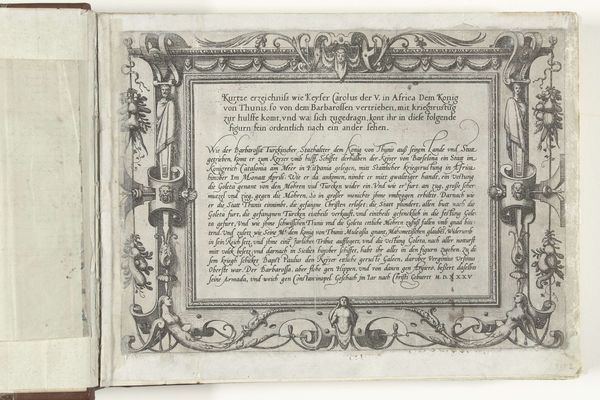 Kurtze erzeichniss wie Keyser Carolus der V. in Africa Dem Konig
von Thunis, so von dem Barbarossen vertrieben, mit kriegsrustug
zur hulffe komt, vnd was sich zugedragn, kont ihr in diese folgende
figurn fein ordentlich nach ein ander sehen.
Wie der Barbarossa Turckischer Stathalter dem Konig von Thunis auss seinem Lande vnd Stat
getrieben, komt er zum Keyser vmb hilff, Schiffet derhalben der Keyser von Barselona ein Stat im
Konigreich Catalonia am Meer in Hispania gelegen, mit Statlicher Kriegsrustung in Africa
hinüber Im Monatt Aprili. Wie er da ankomen, nimbt er mitt gwaltiger handt, ein Vestung
die Goleta genant von den Mohren vnd Turcken wider ein. Vnd wie er furt an zug, gross scher-
mutzel vnd zug, gegen die Mohren, da in grosser mennche ihne vmbogen erhaltt. Darnach wie
er die Statt Thunis einnimbt, die gefangne Christen erloset, die Statt plundert, allen butt nach die
Goleta furt, die gefangnen Turcken eintheils verkaufft, vnd eintheils gefencklich in die festung Gole-
ta gefurt, Vnd wie ihme schweifischen Thunis vnd die Goleta ettliche Mohren zufuss fallen vmb gnad bit-
tend. Vnd zuletz wie Seine Mt. dem Konig von Thunis Muleassa gnant, Mahometischen glaubes, Widerumb
in sein Reich setz, vnd ihme eine jarlichen Tribut aufflegett, vnd die Vestung Goleta, nach aller noturfft
mit volck besetz, vnd darnach in Sicilien hinüber schiffet, habt ihr alles in den figuren zusehen. Zu di-
sem kriegh schicket Bapst Paulus dem Keyser etliche geruste Galeen, daruber Verginius Vrsinus
Oberster war. Der Barbarossa aber flohe gen Hippon, vnd von danen gen Argiero, bessert daselbst
seine Armada, vnd weich gen Constantinopel. Geschach im Iar nach Christi Geburtt M. D. XXXV